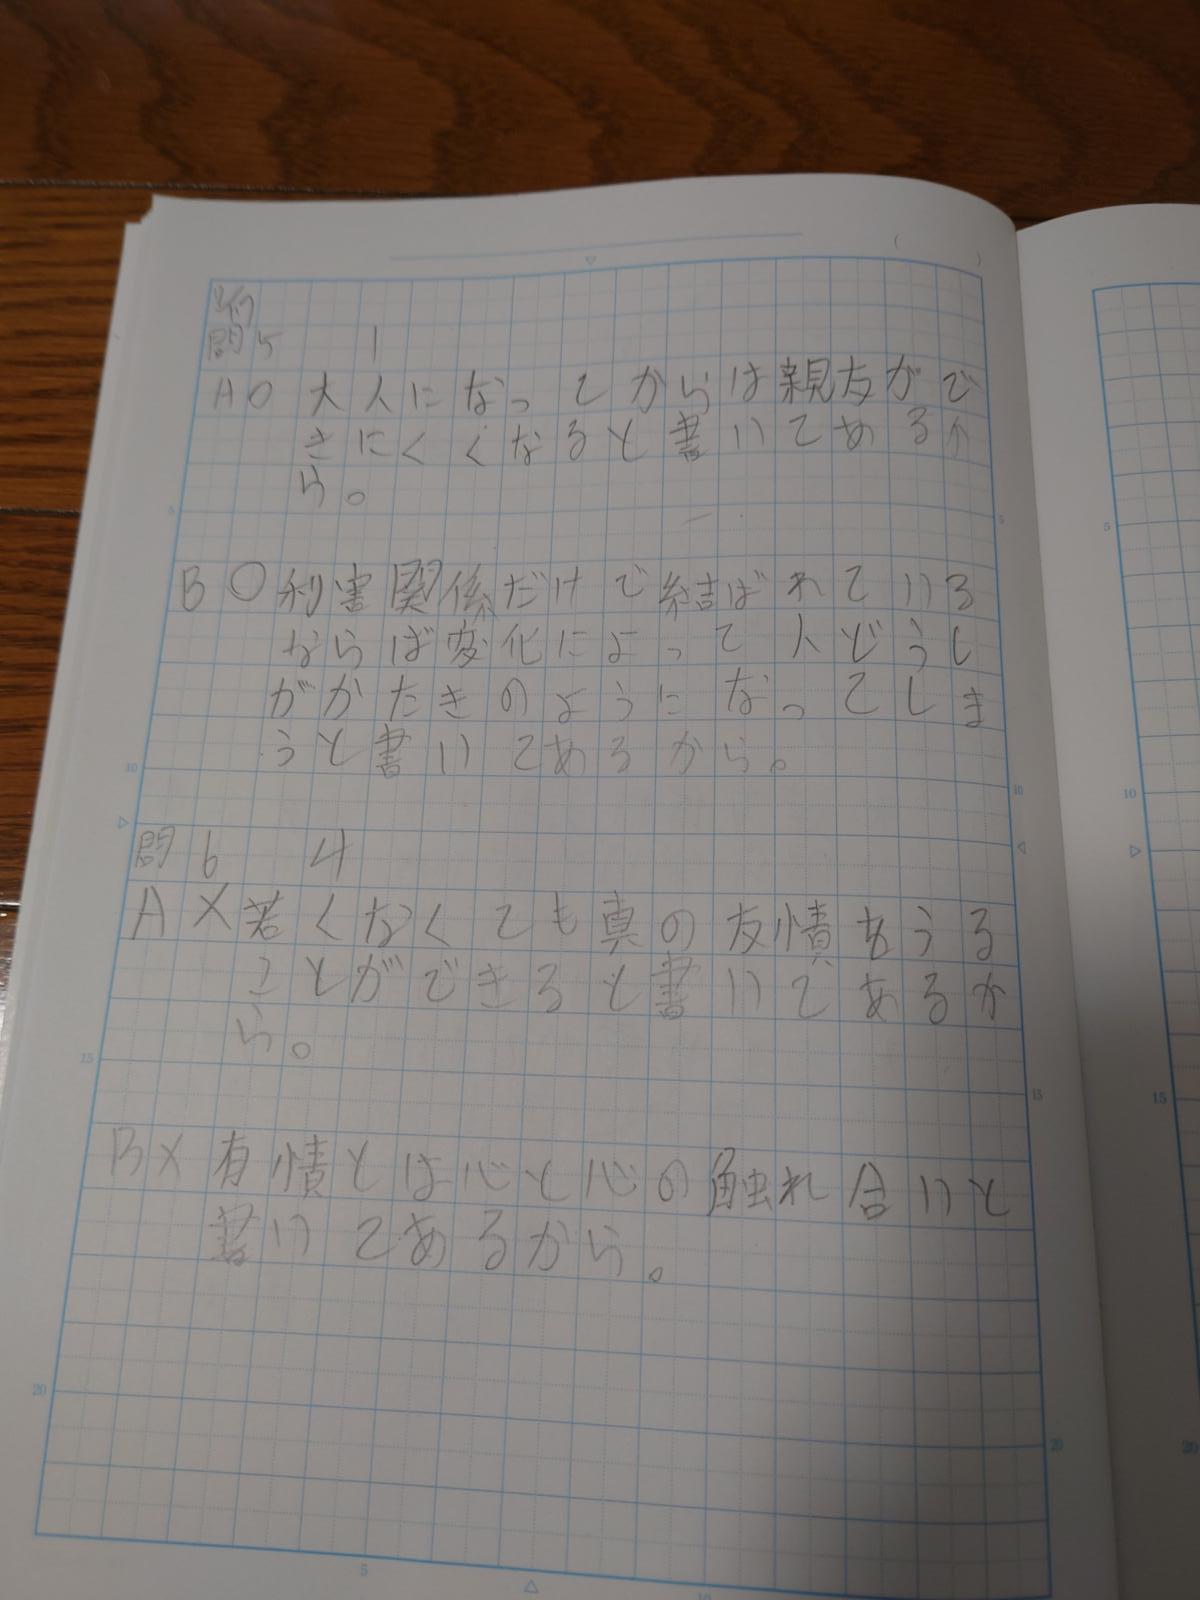 問5 1
A○ 大人になってからは親友がで
きにくくなると書いてあるか
ら。
B○利害関係だけで結ばれている
ならば変化によって人どうし
がかたきのようになってしま
うと書いてあるから。
問6 4
A×若くなくても真の友情をうる
ことができると書いてあるか
ら。
B×有情とは心と心の触れ合いと
書いてあるから。
5
10
15
20
5
10
15
20
5
10
5
10
15
20